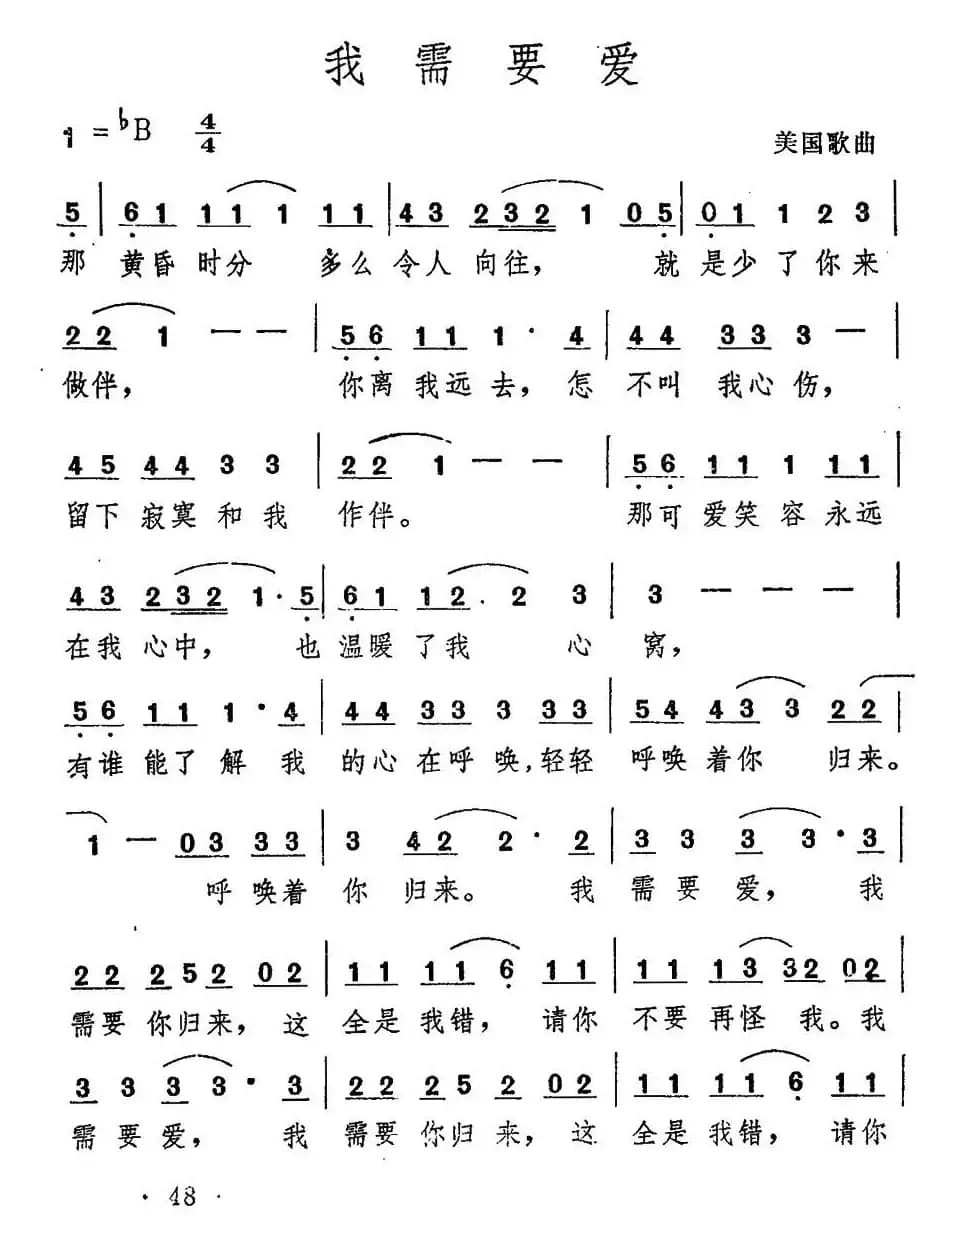 我需要爱
1=♭B 4/4
美国歌曲
5 | 6 1 1 1 1 1 1 | 4 3 2 3 2 1 0 5 | 0 1 1 2 3 |
那 黄昏时分 多么令人向往， 就是少了你来
2 2 1 — — | 5 6 1 1 1 · 4 | 4 4 3 3 3 — |
做伴， 你离我远去，怎不叫我心伤，
4 5 4 4 3 3 | 2 2 1 — — | 5 6 1 1 1 1 1 |
留下寂寞和我 作伴。 那可爱笑容永远
4 3 2 3 2 1 · 5 | 6 1 1 2 . 2 3 | 3 — — — |
在我心中， 也温暖了我 心 窝，
5 6 1 1 1 · 4 | 4 4 3 3 3 3 3 | 5 4 4 3 3 2 2 |
有谁能了解我 的心在呼唤，轻轻 呼唤着你 归来。
1 — 0 3 3 3 | 3 4 2 2 · 2 | 3 3 3 3 · 3 |
呼唤着 你归来。 我 需要爱， 我
2 2 2 5 2 0 2 | 1 1 1 1 6 1 1 | 1 1 1 3 3 2 0 2 |
需要你归来，这 全是我错，请你 不要再怪 我。我
3 3 3 3 · 3 | 2 2 2 5 2 0 2 | 1 1 1 1 6 1 1 |
需要爱， 我 需要你归来，这 全是我错，请你
· 48 ·